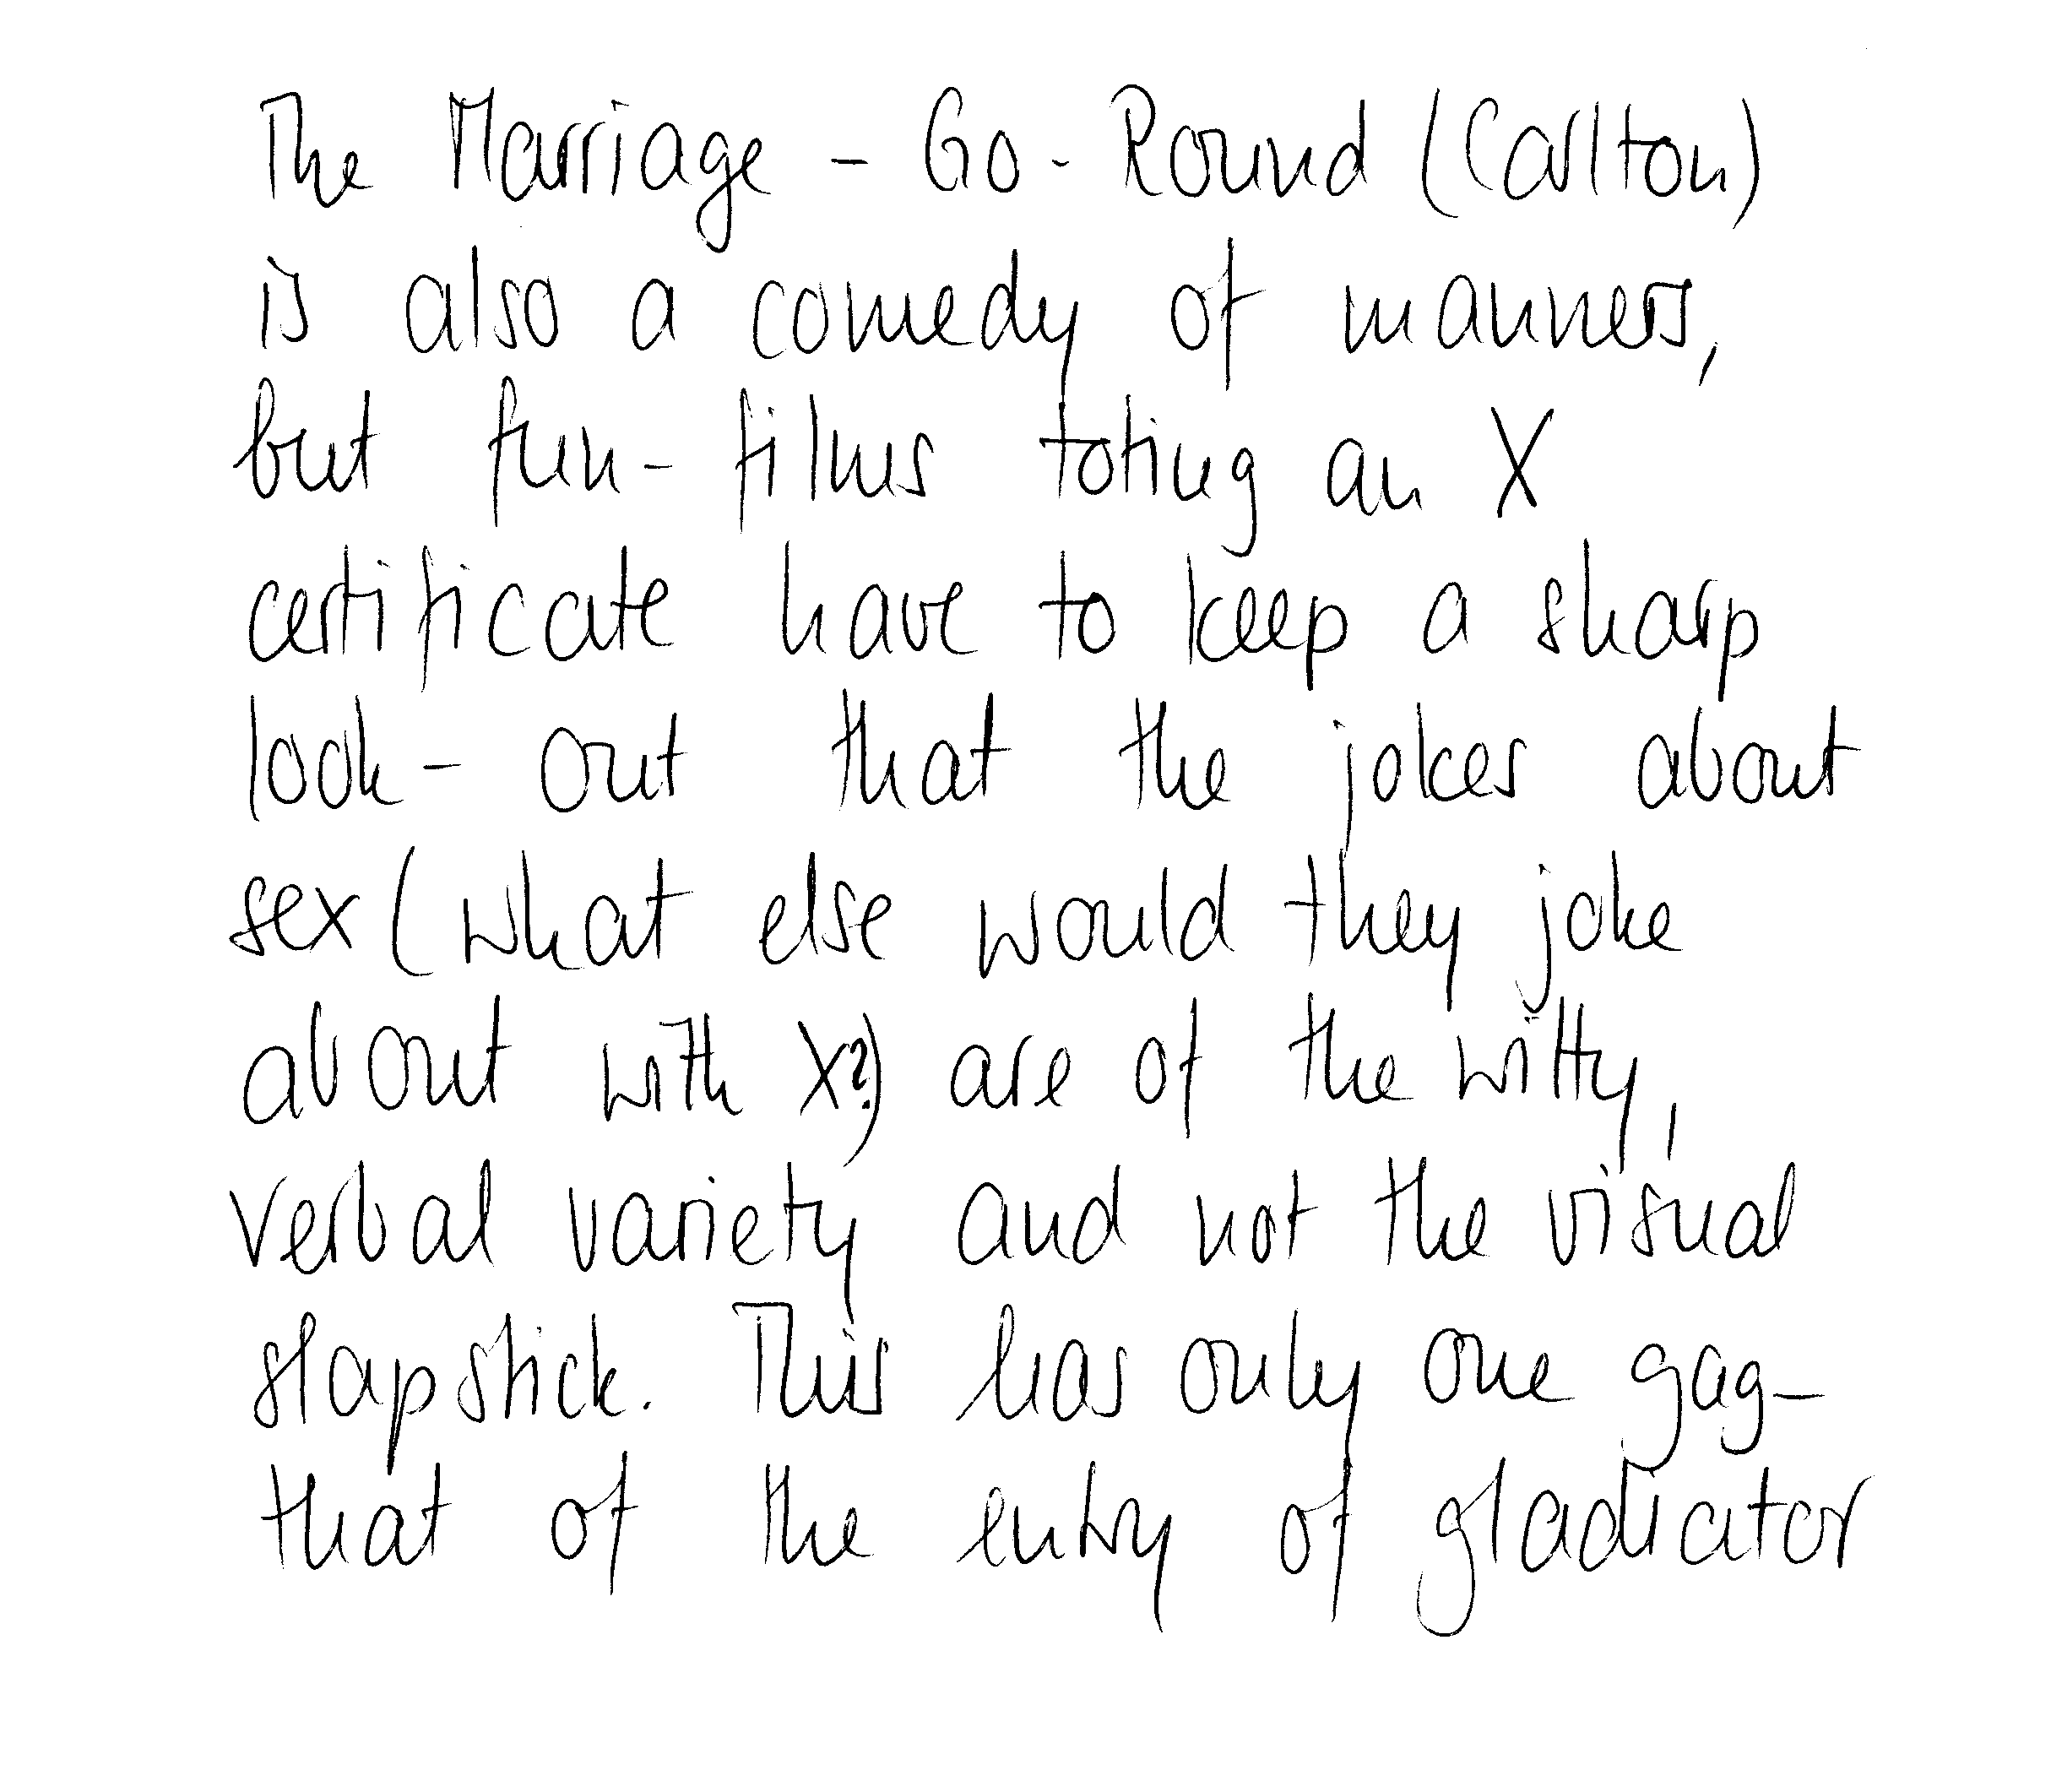 The Marriage - Go - Round (Carlton)
is also a comedy of manners,
but fun- films toting an X
certificate have to keep a sharp
look - out that the jokes about
sex (what else would they joke
about with X?) are of the witty,
verbal variety and not the visual
slapstick. This has only one gag -
that of the entry of gladiator